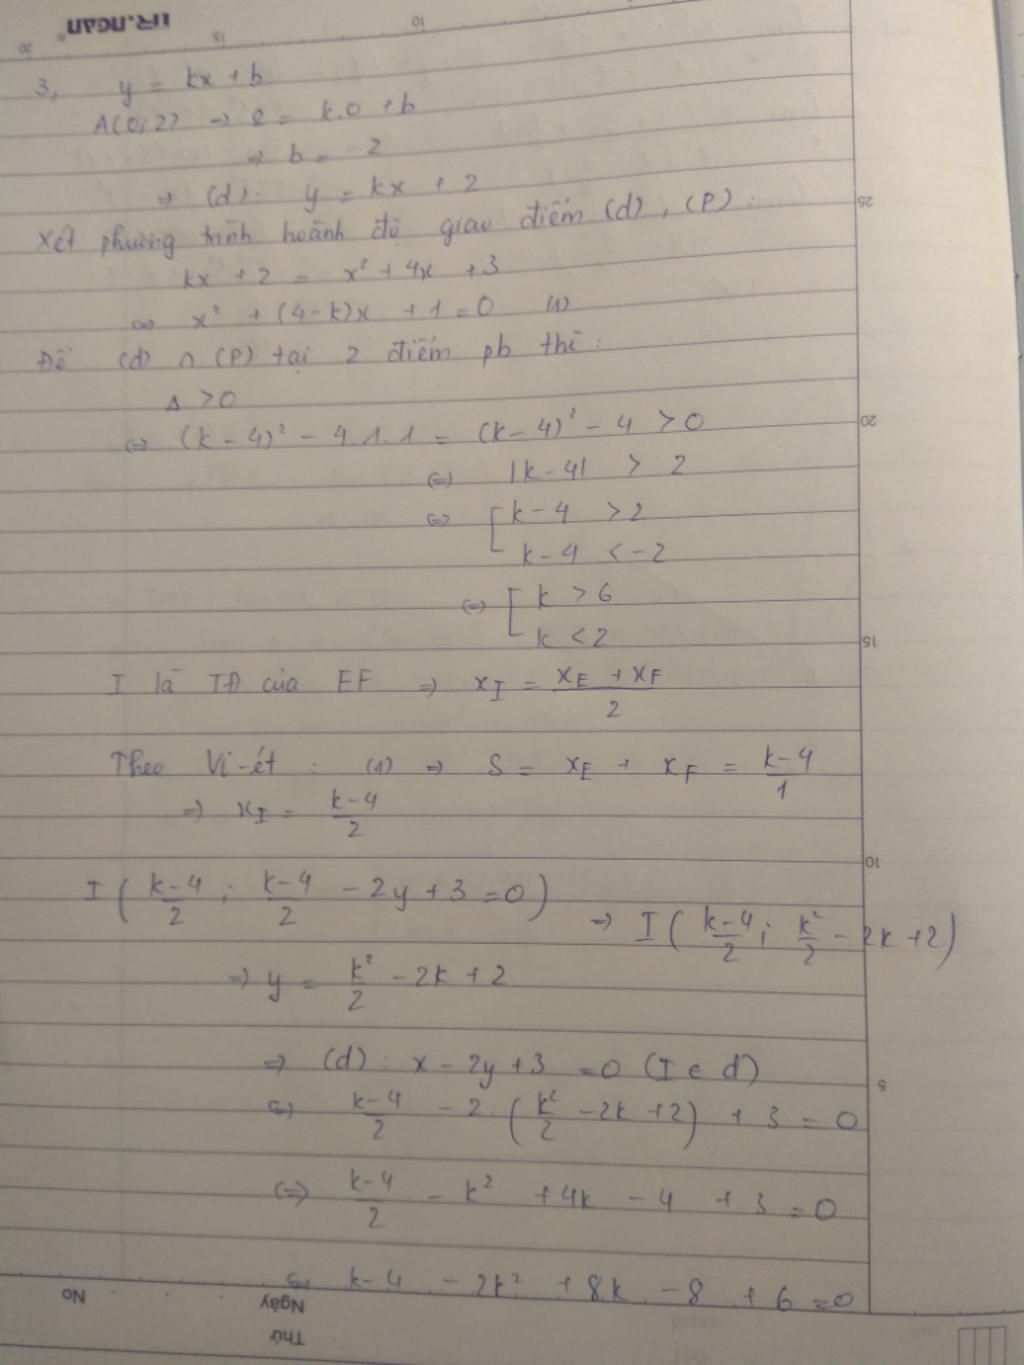 TR.NGAN
20 18 10
3, y = kx + b
A(0;2) → 2 = k.0 + b
⇒ b = 2
⇒ (d): y = kx + 2
25
Xét phương trình hoành độ giao điểm (d), (P) :
kx + 2 = x² + 4x + 3
⇔ x² + (4-k)x + 1 = 0 (1)
Để (d) ∩ (P) tại 2 điểm pb thì :
Δ > 0
20
⇔ (k - 4)² - 4.1.1 = (k - 4)² - 4 > 0
⇔ |k - 4| > 2
⇔ [ k - 4 > 2
k - 4 < -2
⇔ [ k > 6
k < 2
15
I là TĐ của EF ⇒ x_I = (x_E + x_F)/2
Theo Vi-ét : (1) ⇒ S = x_E + x_F = (k-4)/1
⇒ x_I = (k-4)/2
10
I ( (k-4)/2 ; (k-4)/2 - 2y + 3 = 0 ) ⇒ I ( (k-4)/2 ; k²/2 - 2k + 2 )
⇒ y = k²/2 - 2k + 2
⇒ (d) : x - 2y + 3 = 0 (I ∈ d)
5
⇔ (k-4)/2 - 2. ( k²/2 - 2k + 2 ) + 3 = 0
⇔ (k-4)/2 - k² + 4k - 4 + 3 = 0
⇔ k-4 - 2k² + 8k - 8 + 6 = 0
No
Ngày
Thứ